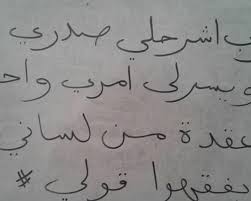 ي اشرحلي صدري
ويسرلي امري واح
عقدة من لساني
يفقهوا قولي #